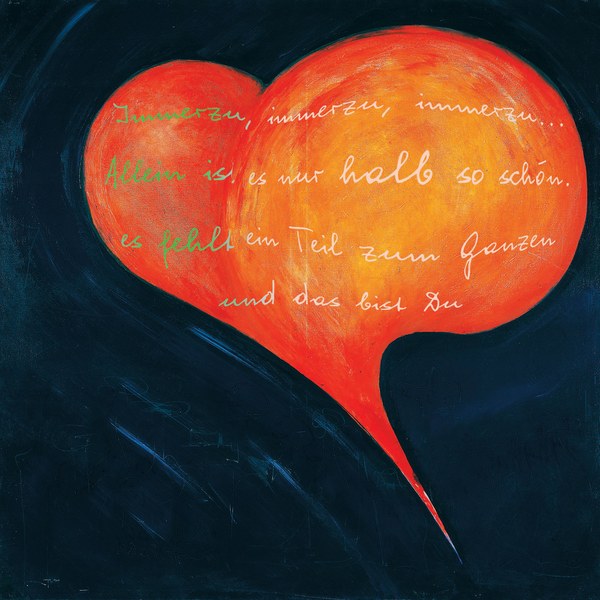 Immerzu, immerzu, immerzu...
Allein ist es nur halb so schön.
es fehlt ein Teil zum Ganzen
und das bist Du